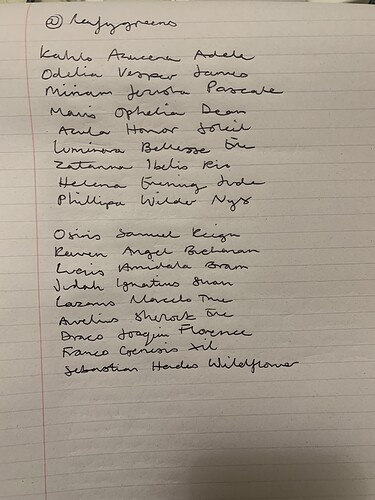 @ leafygreens
Kahlo Azucena Adele
Odelia Vesper James
Miriam Pascale
Maris Ophelia Dean
Azula Honor Soleil
Luminosa Bellesse
Zatanna Ibelis Rio
Helena Evening Jude
Phillipa Wilder Nyx
Osiris Samuel Reign
Reuven Angel Buchanan
Lucius Amidala Bram
Judah Ignatius Juan
Lazarus Marcelo
Aurelius Sherlock
Draco Joaquin Florence
Franco Genesis Xil
Sebastian Hades Wildflower